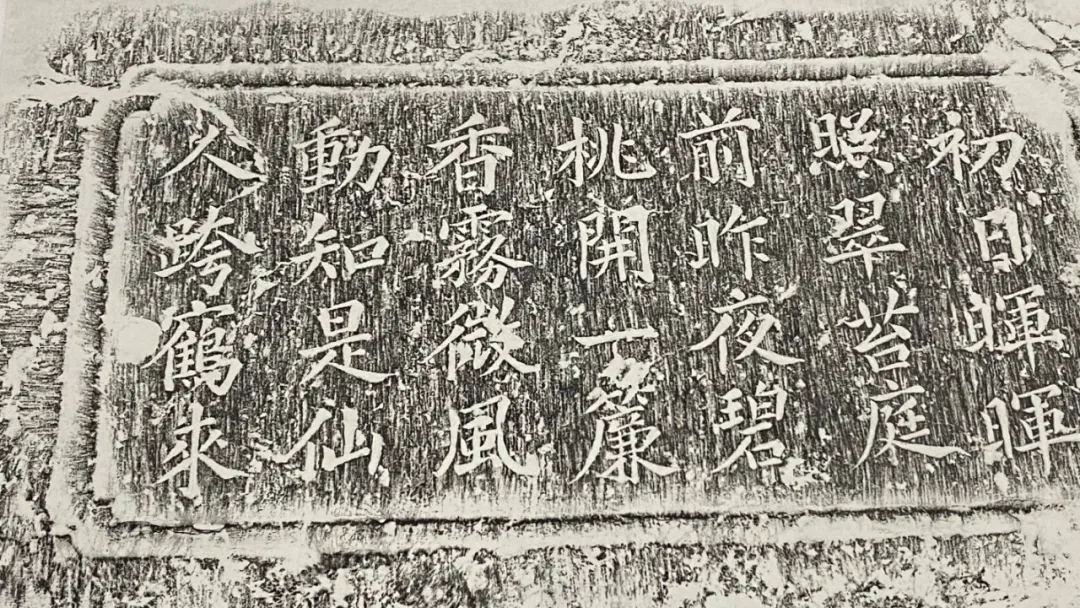 初日暉暉
照翠苔庭
前昨夜碧
桃開一簾
香霧微風
動知是仙
人跨鶴來